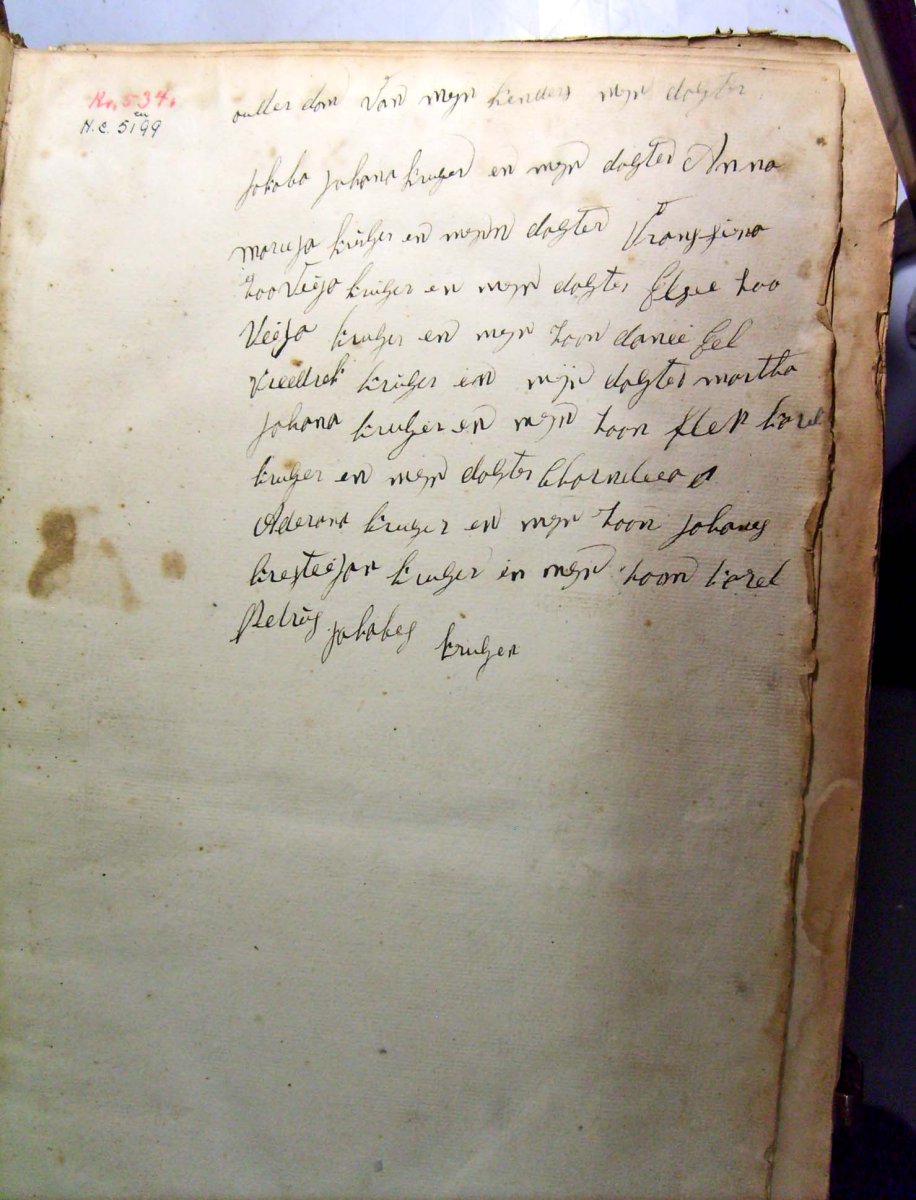 Kr. 534.
H.C. 5199
en
ouller dom van mijn kenders mijn dogter
jokoba johana kruger en mijn dogter Anna
mareja kruger en mijnn dogter Vransyina
zooveija kruger en mijn dogter Elsee zoo
veeja kruger en mijn zoon daneeGel
vreedrek kruger en mijn dogter martha
johana kruger en mijn zoon karel
kruger en mijn dogter khornelea
Aderana kruger en mijn zoon johanes
kresteejan kruger en mijn zoon karel
Petrus jakobes kruger